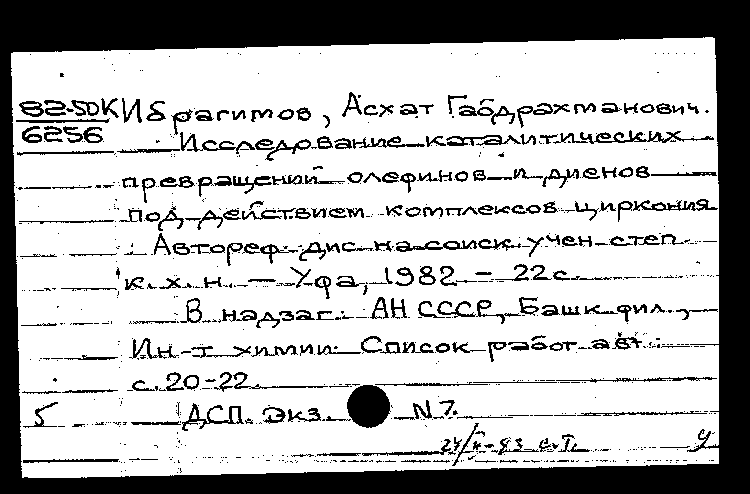 82-5DК Ибрагимов, Асхат Габдрахманович.
6256
Исследование каталитических
превращений олефинов и диенов
под действием комплексов циркония
: Автореф. дис. на соиск. учен. степ.
к. х. н. — Уфа, 1982 - 22 с.
В надзаг.: АН СССР, Башк. фил.,
Ин-т химии. Список работ авт.:
с. 20-22.
5 ДСП. Экз. N 7.